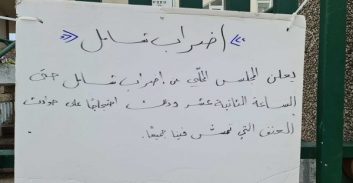 »اضراب شامل«
يعلن المجلس المحلي عن اضراب شامل حتى
الساعة الثانية عشر وذلك احتجاجا على حوادث
العنف التي تمس فينا جميعا.